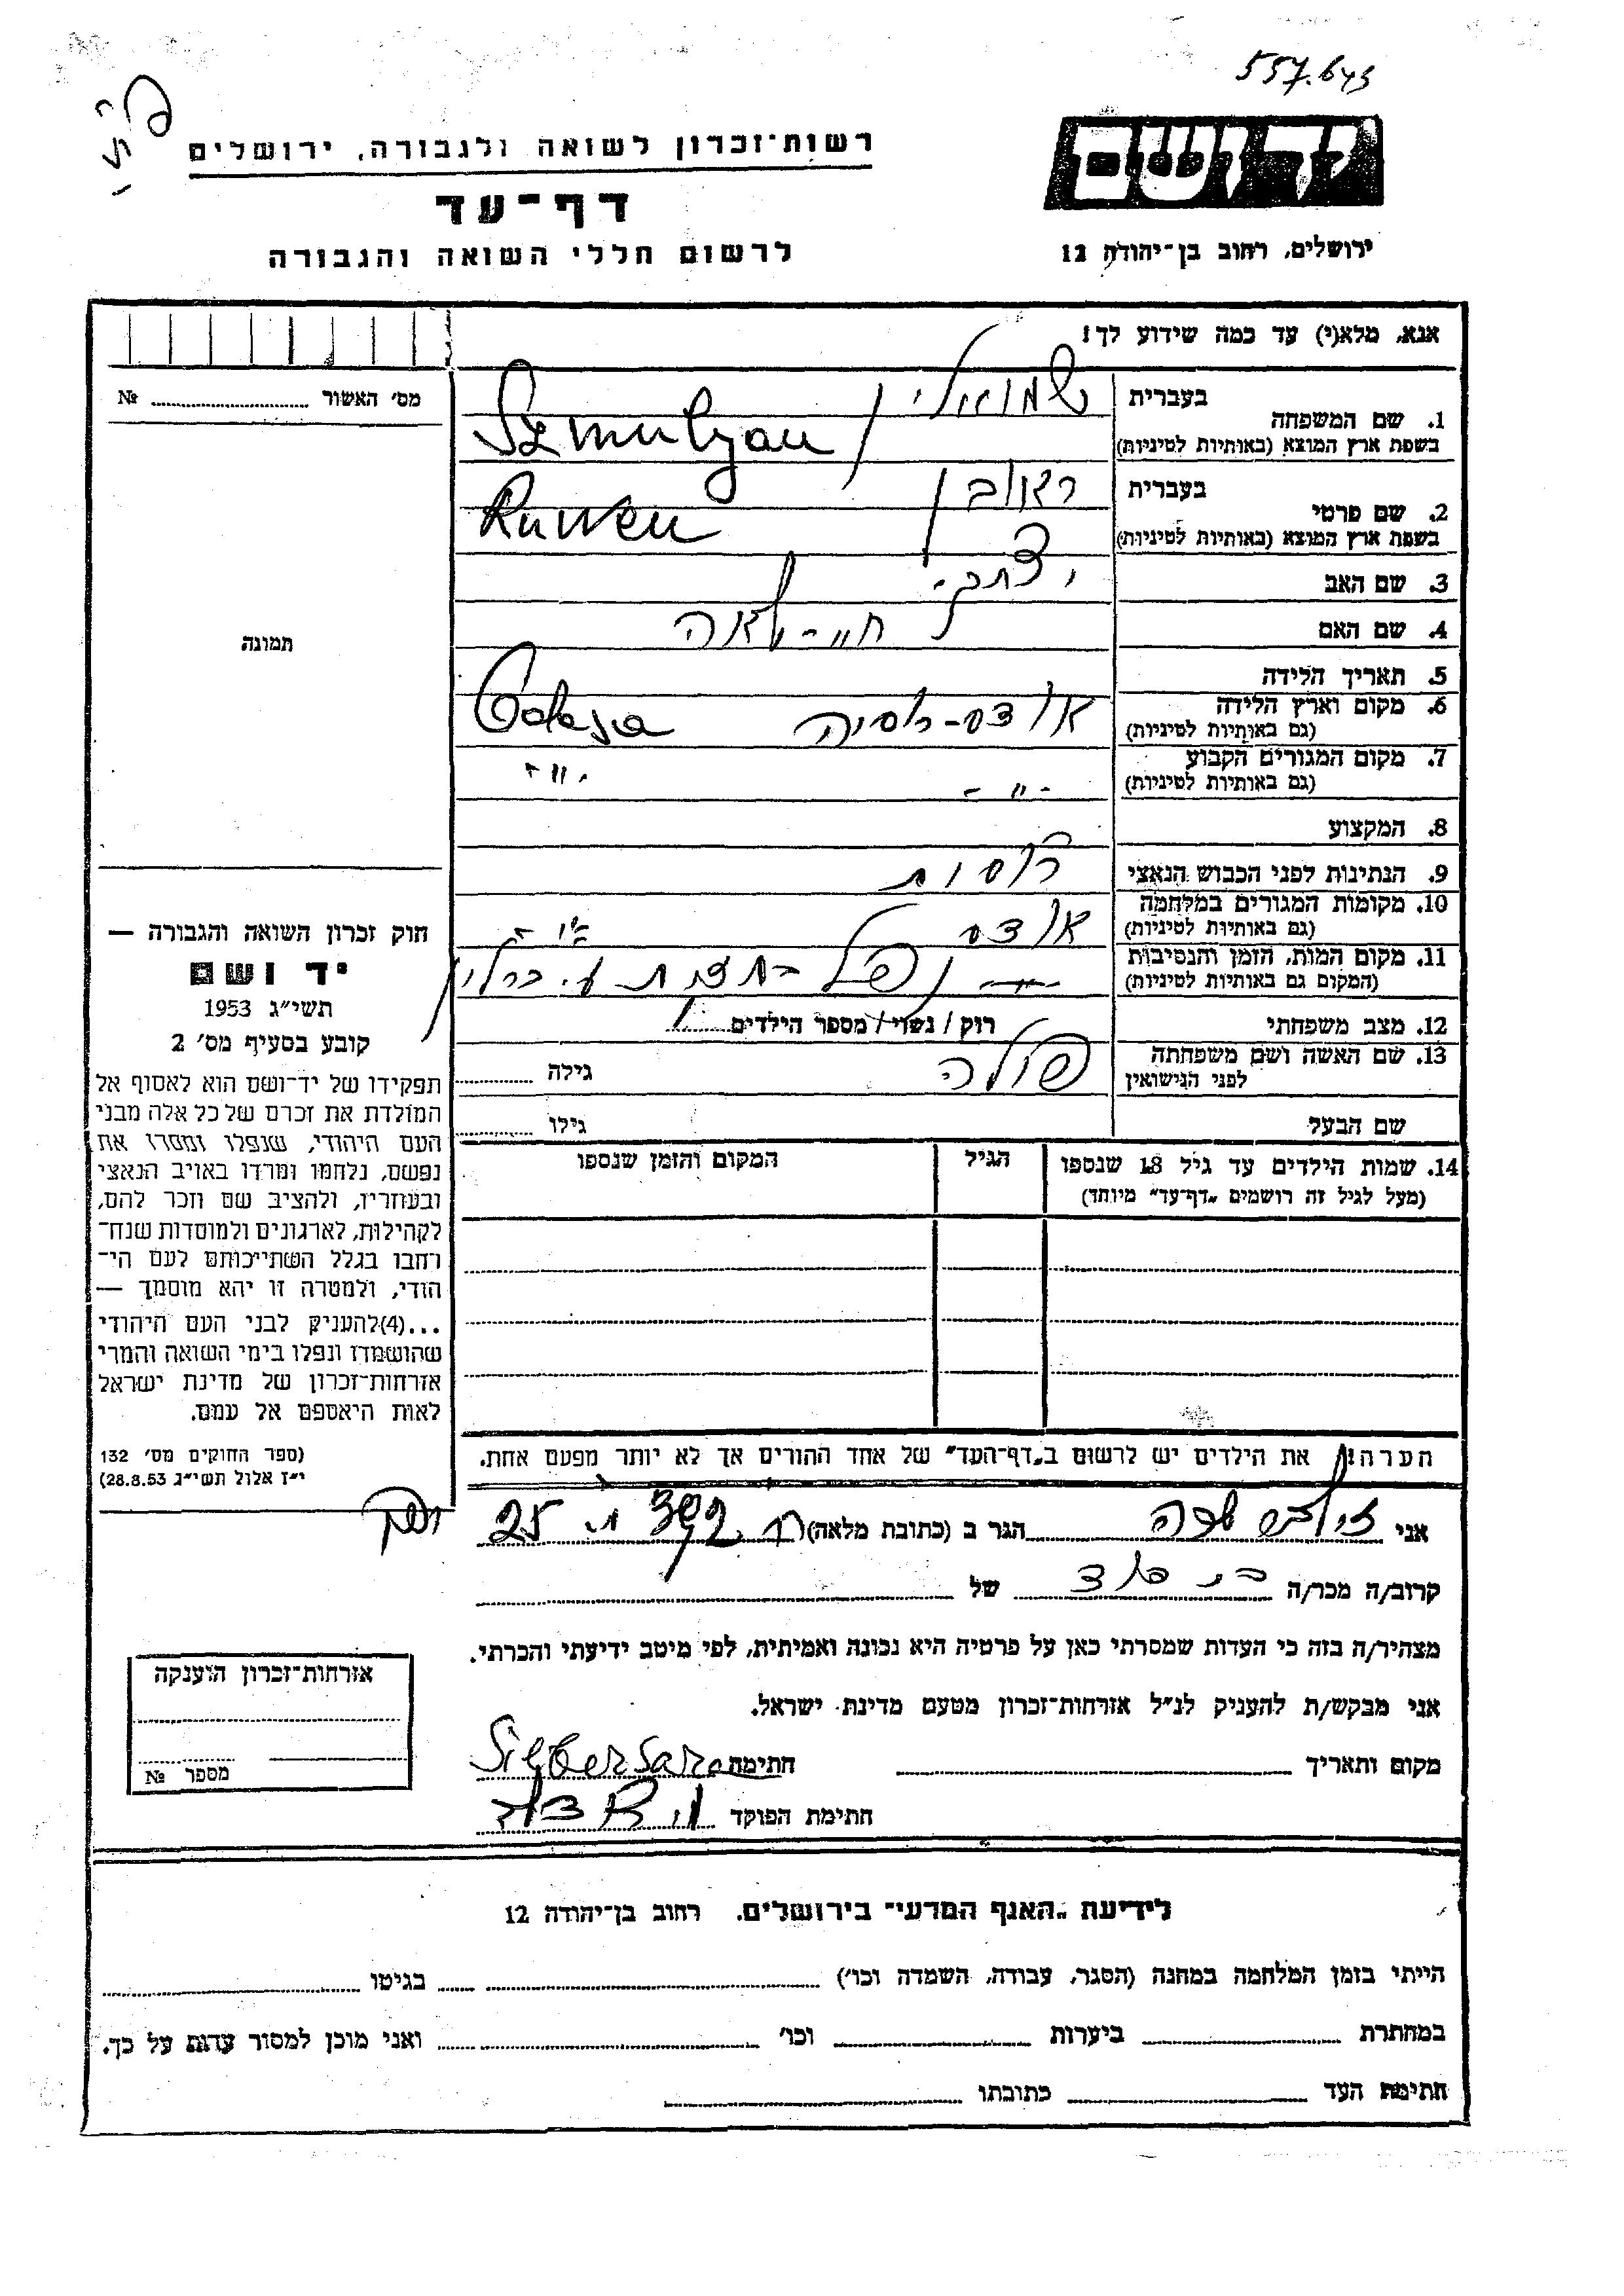 557.643
רשות־זכרון לשואה ולגבורה, ירושלים
יד ושם
דף־עד
לרשום חללי השואה והגבורה
ירושלים, רחוב בן־יהודה 12
אנא, מלא(י) עד כמה שידוע לך!
מס׳ האשור № 
1. שם המשפחה
בעברית
שמואלין
בשפת ארץ המוצא (באותיות לטיניות)
Szmulyan
2. שם פרטי
בעברית
ראובן
בשפת ארץ המוצא (באותיות לטיניות)
Ruwen
3. שם האב
יצחק
4. שם האם
חיה-לאה
5. תאריך הלידה
6. מקום וארץ הלידה
(גם באותיות לטיניות)
אודסה-רוסיה Odesa
7. מקום המגורים הקבוע
(גם באותיות לטיניות)
-"- -"-
8. המקצוע
9. הנתינות לפני הכבוש הנאצי
רוסית
10. מקומות המגורים במלחמה
(גם באותיות לטיניות)
אודס
11. מקום המות, הזמן והנסיבות
(המקום גם באותיות לטיניות)
נפל בחזית ע״י ברלין
12. מצב משפחתי
רוק / נשוי / מספר הילדים 1
13. שם האשה ושם משפחתה
לפני הנישואין
פולה
גילה
שם הבעל
גילו
14. שמות הילדים עד גיל 18 שנספו
(מעל לגיל זה רושמים „דף־עד״ מיוחד)
הגיל
המקום והזמן שנספו
הערה: את הילדים יש לרשום ב„דף־העד״ של אחד ההורים אך לא יותר מפעם אחת.
תמונה
חוק זכרון השואה והגבורה —
יד ושם
תשי״ג 1953
קובע בסעיף מס׳ 2
תפקידו של יד־ושם הוא לאסוף אל
המולדת את זכרם של כל אלה מבני
העם היהודי, שנפלו ומסרו את
נפשם, נלחמו ומרדו באויב הנאצי
ובעוזריו, ולהציב שם וזכר להם,
לקהילות, לארגונים ולמוסדות שנח־
רבו בגלל השתייכותם לעם הי־
הודי, ולמטרה זו יהא מוסמך —
...(4)להעניק לבני העם היהודי
שהושמדו ונפלו בימי השואה והמרי
אזרחות־זכרון של מדינת ישראל
לאות היאספם אל עמם.
(ספר החוקים מס׳ 132
י״ז אלול תשי״ג 28.8.53)
אני זילבר שרה הגר ב (כתובת מלאה) 25
קרוב/ה מכר/ה בן דוד של
מצהיר/ה בזה כי העדות שמסרתי כאן על פרטיה היא נכונה ואמיתית, לפי מיטב ידיעתי והכרתי.
אני מבקש/ת להעניק לנ״ל אזרחות־זכרון מטעם מדינת ישראל.
מקום ותאריך חתימה Silber Sara
חתימת הפוקד
אזרחות־זכרון הוענקה
מספר №
לידיעת „האגף המדעי״ בירושלים, רחוב בן־יהודה 12
הייתי בזמן המלחמה במחנה (הסגר, עבודה, השמדה וכו׳) בגיטו
במחתרת ביערות וכו׳ ואני מוכן למסור עדות על כך.
חתימת העד כתובתו